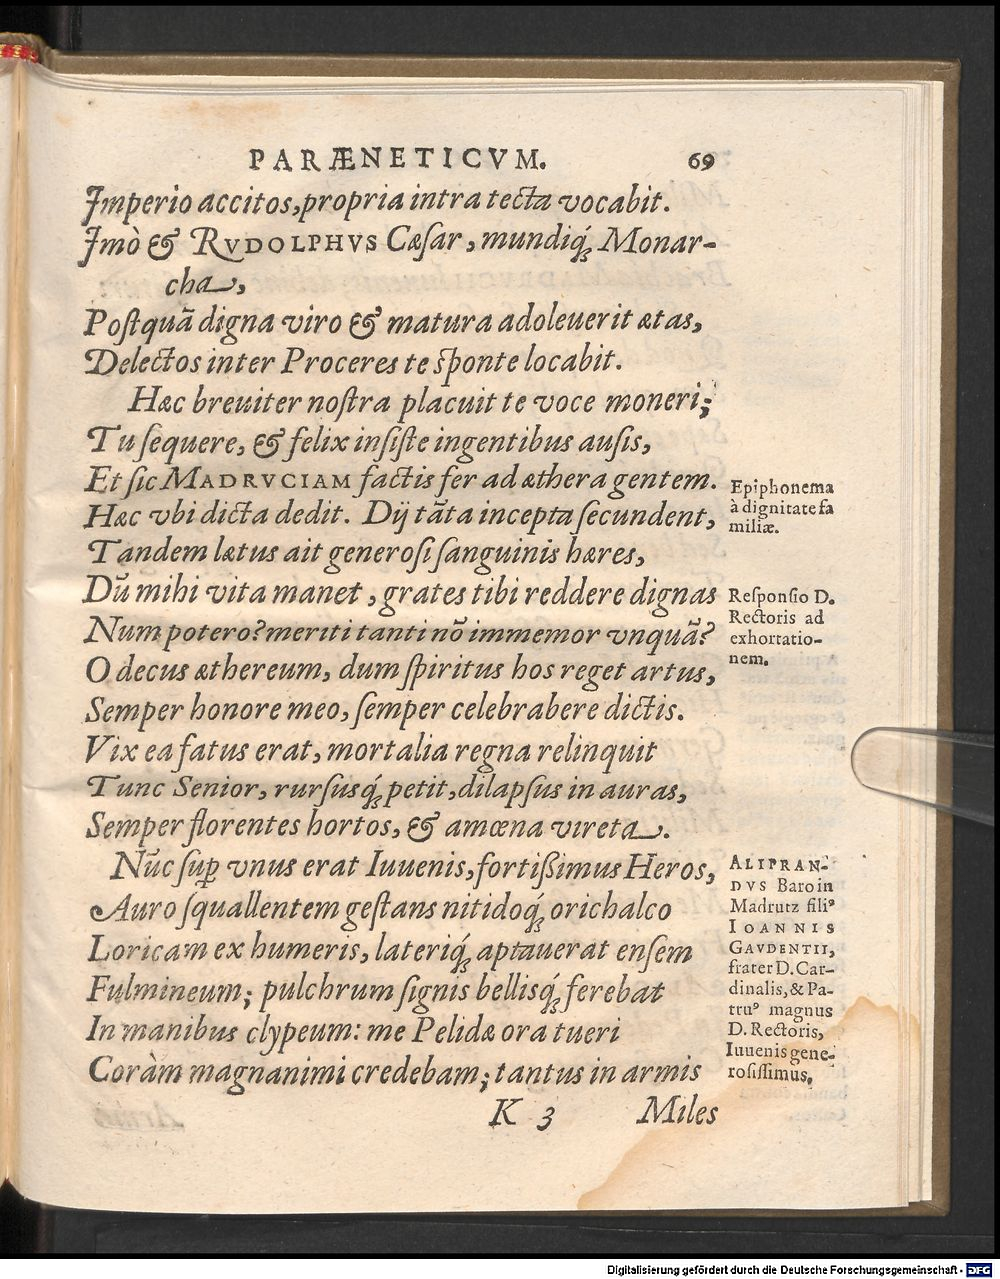 PARÆNETICVM. 69
Imperio accitos, propria intra tecta vocabit.
Imò & RVDOLPHVS Cæſar, mundiq́; Monar-
cha,
Poſtquã digna viro & matura adoleuerit ætas,
Delectos inter Proceres te ſponte locabit.
Hæc breuiter noſtra placuit te voce moneri;
Tu ſequere, & felix inſiſte ingentibus auſis,
Et ſic MADRVCIAM factis fer ad æthera gentem.
Epiphonema
à dignitate fa
miliæ.
Hæc vbi dicta dedit. Dij tãta incepta ſecundent,
Tandem lætus ait generoſi ſanguinis hæres,
Dũ mihi vita manet, grates tibi reddere dignas
Reſponſio D.
Rectoris ad
exhortatio-
nem.
Num potero? meriti tanti nõ immemor vnquã?
O decus æthereum, dum ſpiritus hos reget artus,
Semper honore meo, ſemper celebrabere dictis.
Vix ea fatus erat, mortalia regna relinquit
Tunc Senior, rurſusq́; petit, dilapſus in auras,
Semper florentes hortos, & amœna vireta.
Nũc ſuꝑ vnus erat Iuuenis, fortißimus Heros,
ALIPRAN-
DVS Baro in
Madrutz filiꝰ
IOANNIS
GAVDENTII,
frater D. Car-
dinalis, & Pa-
truꝰ magnus
D. Rectoris,
Iuuenis gene-
roſiſſimus.
Auro ſquallentem geſtans nitidoq́; orichalco
Loricam ex humeris, lateriq́; aptauerat enſem
Fulmineum; pulchrum ſignis bellisq́; ferebat
In manibus clypeum: me Pelidæ ora tueri
Coràm magnanimi credebam; tantus in armis
K 3 Miles
Digitalisierung gefördert durch die Deutsche Forschungsgemeinschaft - DFG